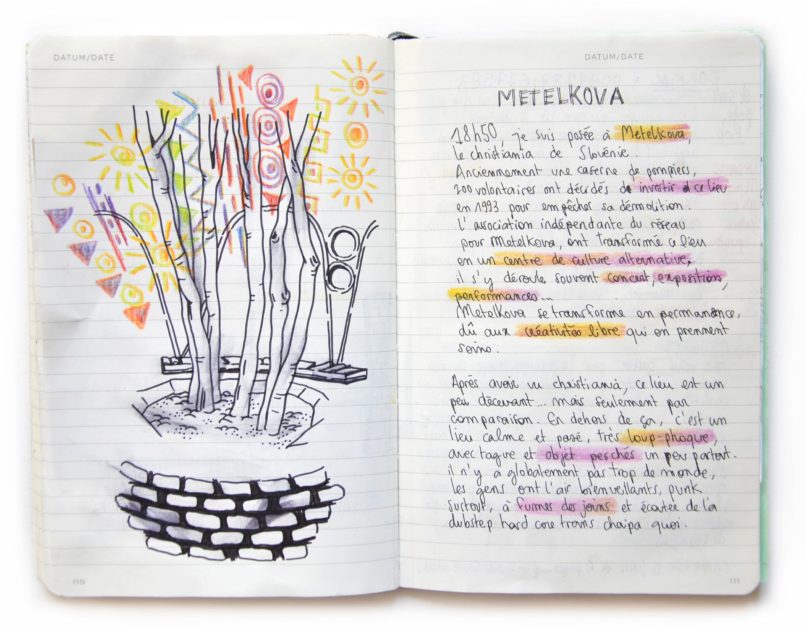 DATUM/DATE
110
DATUM/DATE
METELKOVA
18h50, je suis posée à Metelkova,
le christiania de Slovénie.
Anciennement une caserne de pompiers,
200 volontaires ont décidés d investir ce lieu
en 1993 pour empêcher sa démolition.
L'association indépendante du réseau
pour Metelkova, ont transformé ce lieu
en un centre de culture alternative,
il s'y déroule souvent concert, exposition,
performances...
Metelkova se transforme en permanence,
dû aux créativités libre qui en prennent
soins.
Après avoir vu christiania, ce lieu est un
peu décevant... mais seulement par
comparaison. En dehors de ça, c'est un
lieu calme et posé, très loup-phoque
avec tague et objet perchés un peu partout.
il n'y a globalement pas trop de monde,
les gens ont l'air bienveillants, punk
surtout, à fumer des joins et écoutée de la
dubstep hard core trans chaipa quoi.
111